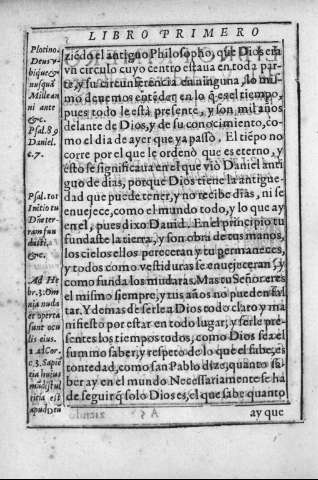 LIBRO PRIMERO
Plotino.
Deus v-
bique &
nusquã
Mille an
ni ante
&c.
Psal. 89
Daniel.
c. 7.
Psal. tot
Initio tu
Dñe ter
ram fun
dasti,
&c.
Ad He
br. 3. Om
nia nuda
et aperta
sunt ocu
lis eius.
1. ad Cor.
c. 3. Sapiẽ
tia huius
mũdi stul
titia est
apud Deũ
ziẽdo el antiguo Philosopho, que Dios era
vn circulo cuyo centro estaua en toda par-
te, y su circunferencia en ninguna, lo mis-
mo deuemos entẽder en lo q̃ es el tiempo,
pues todo le està presente, y son mil años
delante de Dios, y de su conocimiento, co-
mo el dia de ayer que ya passò. El tiẽpo no
corre por el que le ordenò que es eterno, y
esto se significaua en el que viò Daniel anti
guo de dias, porque Dios tiene la antigue-
dad que puede tener, y no recibe dias, ni se
enuejece, como el mundo todo, y lo que ay
en el, pues dixo Dauid. En el principio tu
fundaste la tierra, y son obra de tus manos,
los cielos ellos pereceran y tu permaneces,
y todos como vestiduras se enuejeceran, y
como funda los mudaras. Mas tu Señor eres
el mismo siempre, y tus años no pueden fal
tar. Y demas de serle a Dios todo claro y ma
nifiesto por estar en todo lugar, y serle pre-
sentes los tiempos todos, como Dios sea el
summo saber, y respeto de lo que el sabe, es
tontedad, como san Pablo dize, quanto sa
ber ay en el mundo Necessariamente se ha
de seguir q̃ solo Dios es, el que sabe quanto
ay que